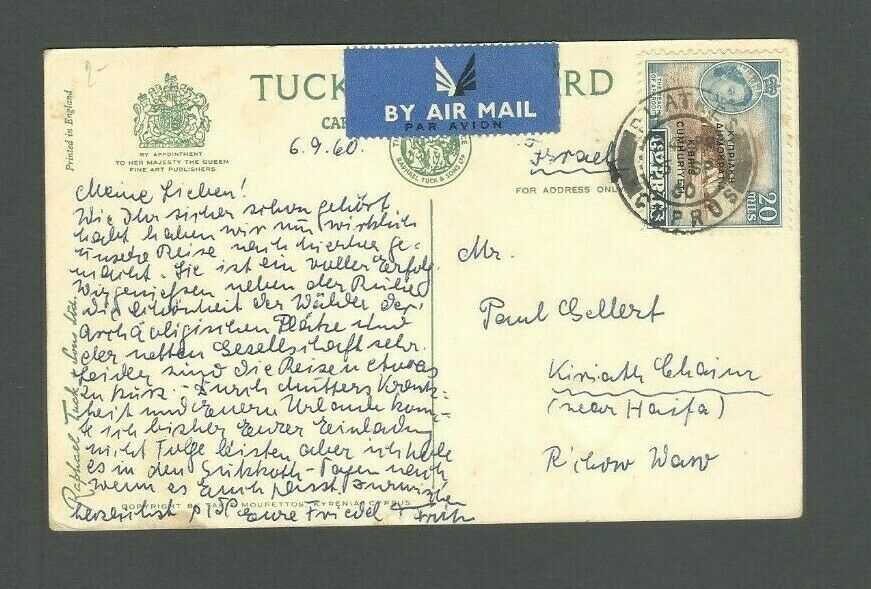 2-
Printed in England
BY APPOINTMENT
TO HER MAJESTY THE QUEEN
FINE ART PUBLISHERS
TUCK
RD
CA
BY AIR MAIL
PAR AVION
RAPHAEL TUCK & SONS LTD
6.9.60.
Israel
FOR ADDRESS ONLY
CYPRUS
ΚΥΠΡΙΑΚΗ
ΔΗΜΟΚΡΑΤΙΑ
KIBRIS
CUMHURIYETI
20
MILS
Meine Lieben!
Wie Ihr sicher schon gehört
habt haben wir nun wirklich
unsere Reise nach hierher ge-
macht. Sie ist ein voller Erfolg.
Wir geniessen neben der Ruhe
die Schönheit der Wälder der
Archäologischen Plätze und
der netten Gesellschaft sehr.
Leider sind die Reisen etwas
zu kurz. - Durch Mutters Krank-
heit und Euern Urlaub konn-
te ich bisher Eurer Einladung
nicht Folge leisten aber ich hole
es in den Sukkoth-Tagen nach
wenn es Euch passt inzwischen
herzlichst Eure Friedel + Fritz
Raphael Tuck & Sons Ltd.
COPYRIGHT BY MOURETTOS, KYRENIA CYPRUS
Mr.
Paul Gellert
Kiriath Chaim
(near Haifa)
Richow Waw